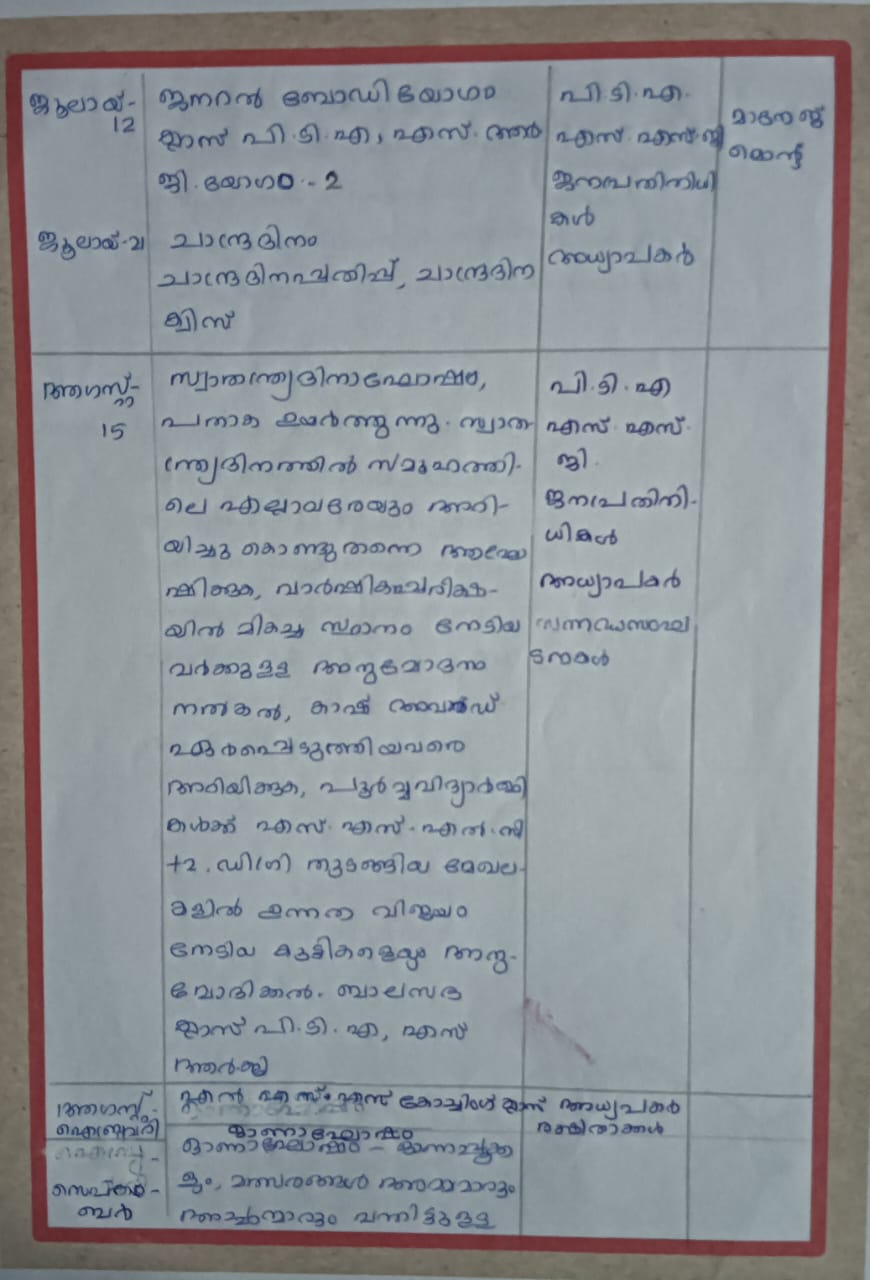 ജൂലായ്-
12
ജനറൽ ബോഡി യോഗം
ക്ലാസ് പി.ടി.എ, എസ്. ആർ
ജി. യോഗം - 2
പി.ടി.എ.
എസ്.എസ്.ജി
ജനപ്രതിനിധി
കൾ
അധ്യാപകർ
മാനേജ്
മെന്റ്
ജൂലായ്-21
ചാന്ദ്രദിനം
ചാന്ദ്രദിനപ്പതിപ്പ്, ചാന്ദ്രദിന
ക്വിസ്
ആഗസ്റ്റ്-
15
സ്വാതന്ത്ര്യദിനാഘോഷം,
പതാക ഉയർത്തുന്നു. സ്വാത
ന്ത്ര്യദിനത്തിൽ സമൂഹത്തി-
ലെ എല്ലാവരേയും അറി-
യിച്ചു കൊണ്ടുതന്നെ ആഘോ
ഷിക്കുക, വാർഷികപ്പരീക്ഷ-
യിൽ മികച്ച സ്ഥാനം നേടിയ
വർക്കുള്ള അനുമോദനം
നൽകൽ, കാഷ് അവാർഡ്
ഏർപ്പെടുത്തിയവരെ
അറിയിക്കുക, പൂർവ്വവിദ്യാർത്ഥി
കൾക്ക് എസ്.എസ്.എൽ.സി
+2, ഡിഗ്രി തുടങ്ങിയ മേഖല-
കളിൽ ഉന്നത വിജയം
നേടിയ കുട്ടികളെയും അനു-
മോദിക്കൽ. ബാലസഭ
ക്ലാസ് പി.ടി.എ, എസ്
ആർജി
പി.ടി.എ
എസ്.എസ്.
ജി.
ജനപ്രതിനി-
ധികൾ
അധ്യാപകർ
സന്നദ്ധസംഘ
ടനകൾ
ആഗസ്റ്റ്-
ഫെബ്രുവരി
എൽ.എസ്.എസ് കോച്ചിംഗ് ക്ലാസ്
ഓണാഘോഷം
അധ്യാപകർ
രക്ഷിതാക്കൾ
സെപ്തം-
ബർ
ഓണാഘോഷം - ഓണപ്പൂക്ക
ളം, മത്സരങ്ങൾ അമ്മമാരും
അച്ഛന്മാരും വന്നിട്ടുള്ള